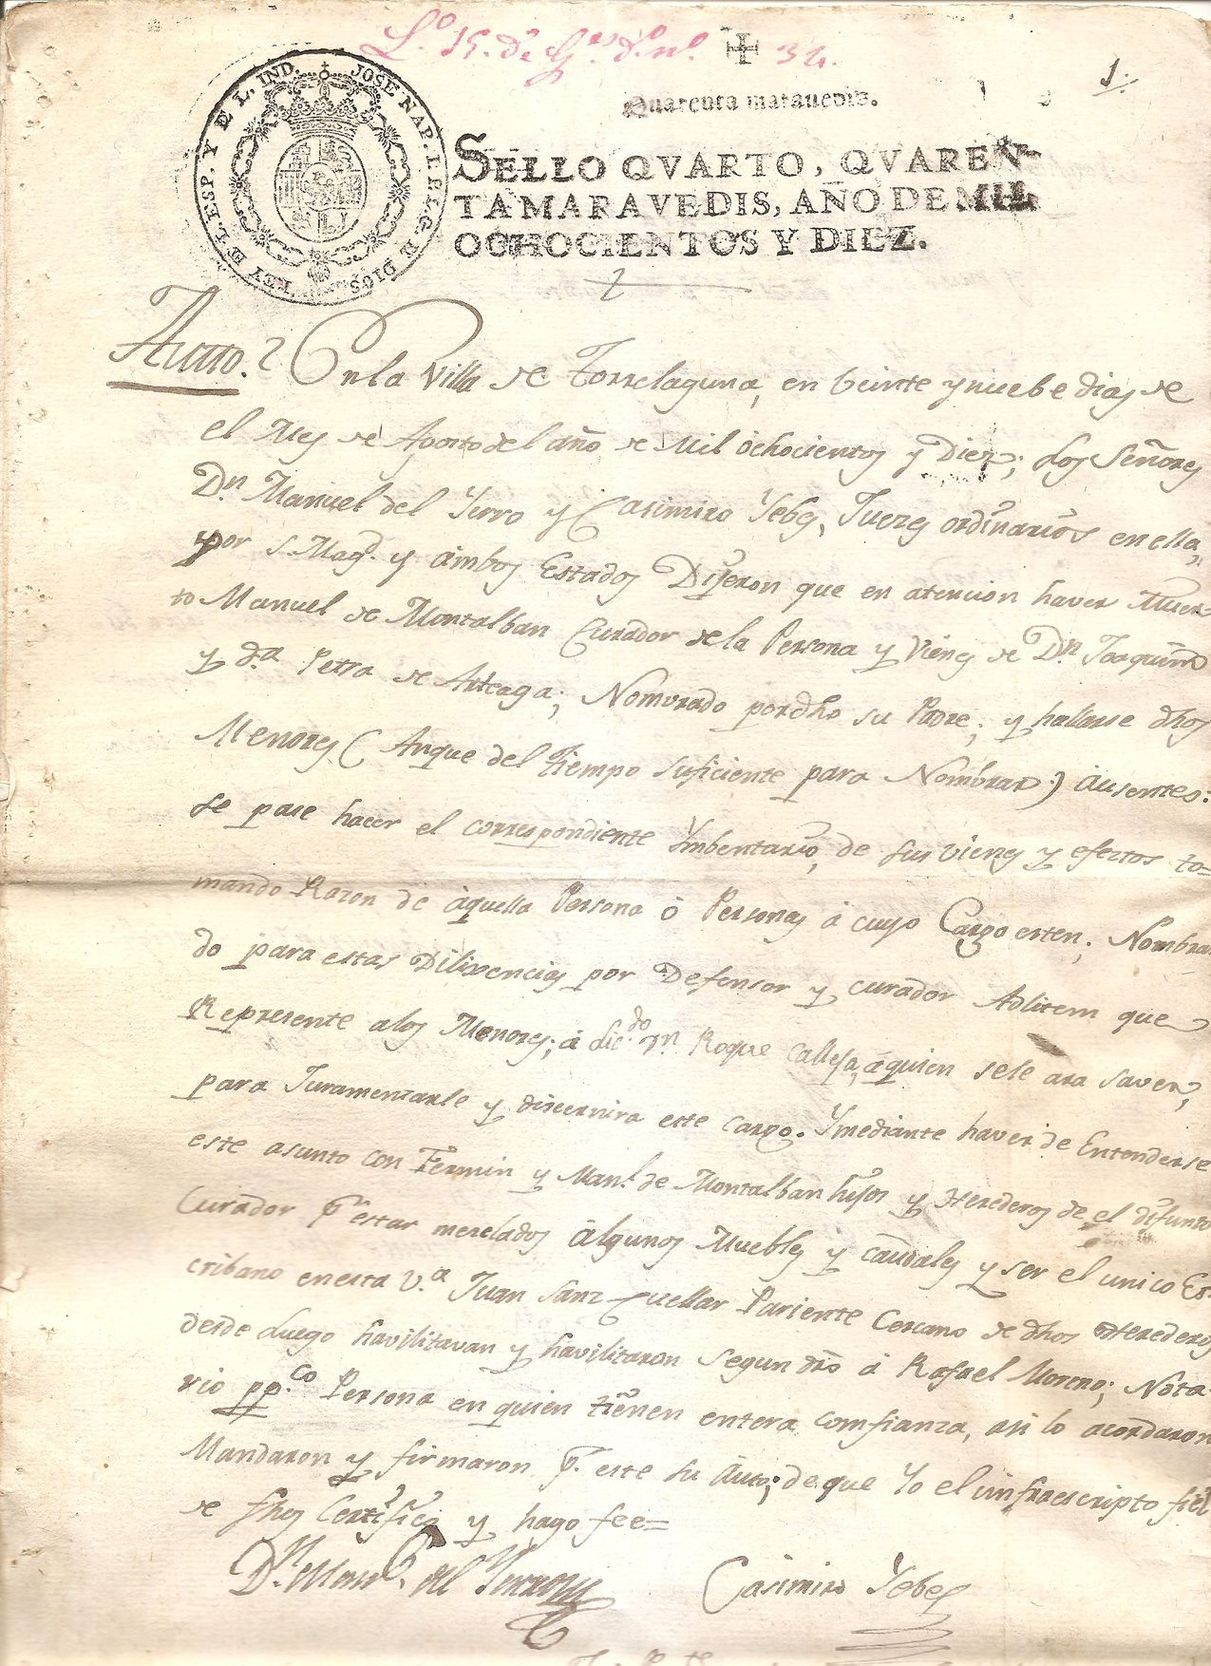 Lº 15. de Gres d.º nº. 34.
1
Quarenta maravedis.
JOSE NAP. I. P. L. G. D. DIOS REY D. L. ESP. Y D. L. IND.
SELLO QVARTO, QVAREN-
TA MARAVEDIS, AÑO DE MIL
OCHOCIENTOS Y DIEZ.
Autto. En la Villa de Torrelaguna, en beinte y nuebe dias de
el Mes de Agosto del año de Mil ochocientos y Diez; Los Señores
Dn. Manuel del Yerro y Casimiro Yebes, Juezes ordinarios en ella,
por S. Magd. y ambos Estados Dijeron que en atencion haver Muer-
to Manuel de Montalban Curador de la Persona y Vienes de Dn. Joaquin
y d.ª Petra de Arteaga; Nomvrado por dho su Padre; y hallarse dhos
Menores (Anque del tiempo suficiente para Nombrar) ausentes:
se pase hacer el correspondiente Ymbentario, de sus vienes y efectos to=
mando Razon de aquella Persona ó Personas á cuyo Cargo esten; Nombran
do para estas Dilixencias por Defensor y curador Adlitem que
Represente a los Menores; á Licdo. Dn. Roque Calleja, áquien sele ara saver,
para Juramentarle y discernira este cargo. Ymediante haver de Entenderse
este asunto con Fermin y Manl. de Montalban hijos y Herederos de el difunto
Curador pr. estar mezclados algunos Muebles y caudales y ser el unico Es-
cribano en esta V.ª Juan Sanz Cuellar Pariente Cercano de dhos Herederos
desde Luego havilitavan y havilitaron segun dro á Rafael Moreno; Nota-
rio pp.co Persona en quien tienen entera comfianza, asi lo acordaron
Mandaron y firmaron pr. este su Auto; de que Yo el imfraescripto fiel
de fhos Certifico y hago fee=
Dn. Manl. del Yerro Casimiro Yebes